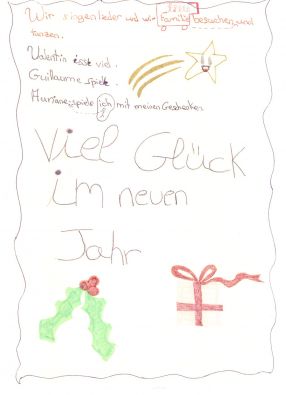 Wir singen lieder und wir Familie besuchen und
tanzen.
Valentin isst viel.
Guillaume spielt.
Auriane, spiele ich mit meinen Geschenken
Viel Glück
im neuen
Jahr